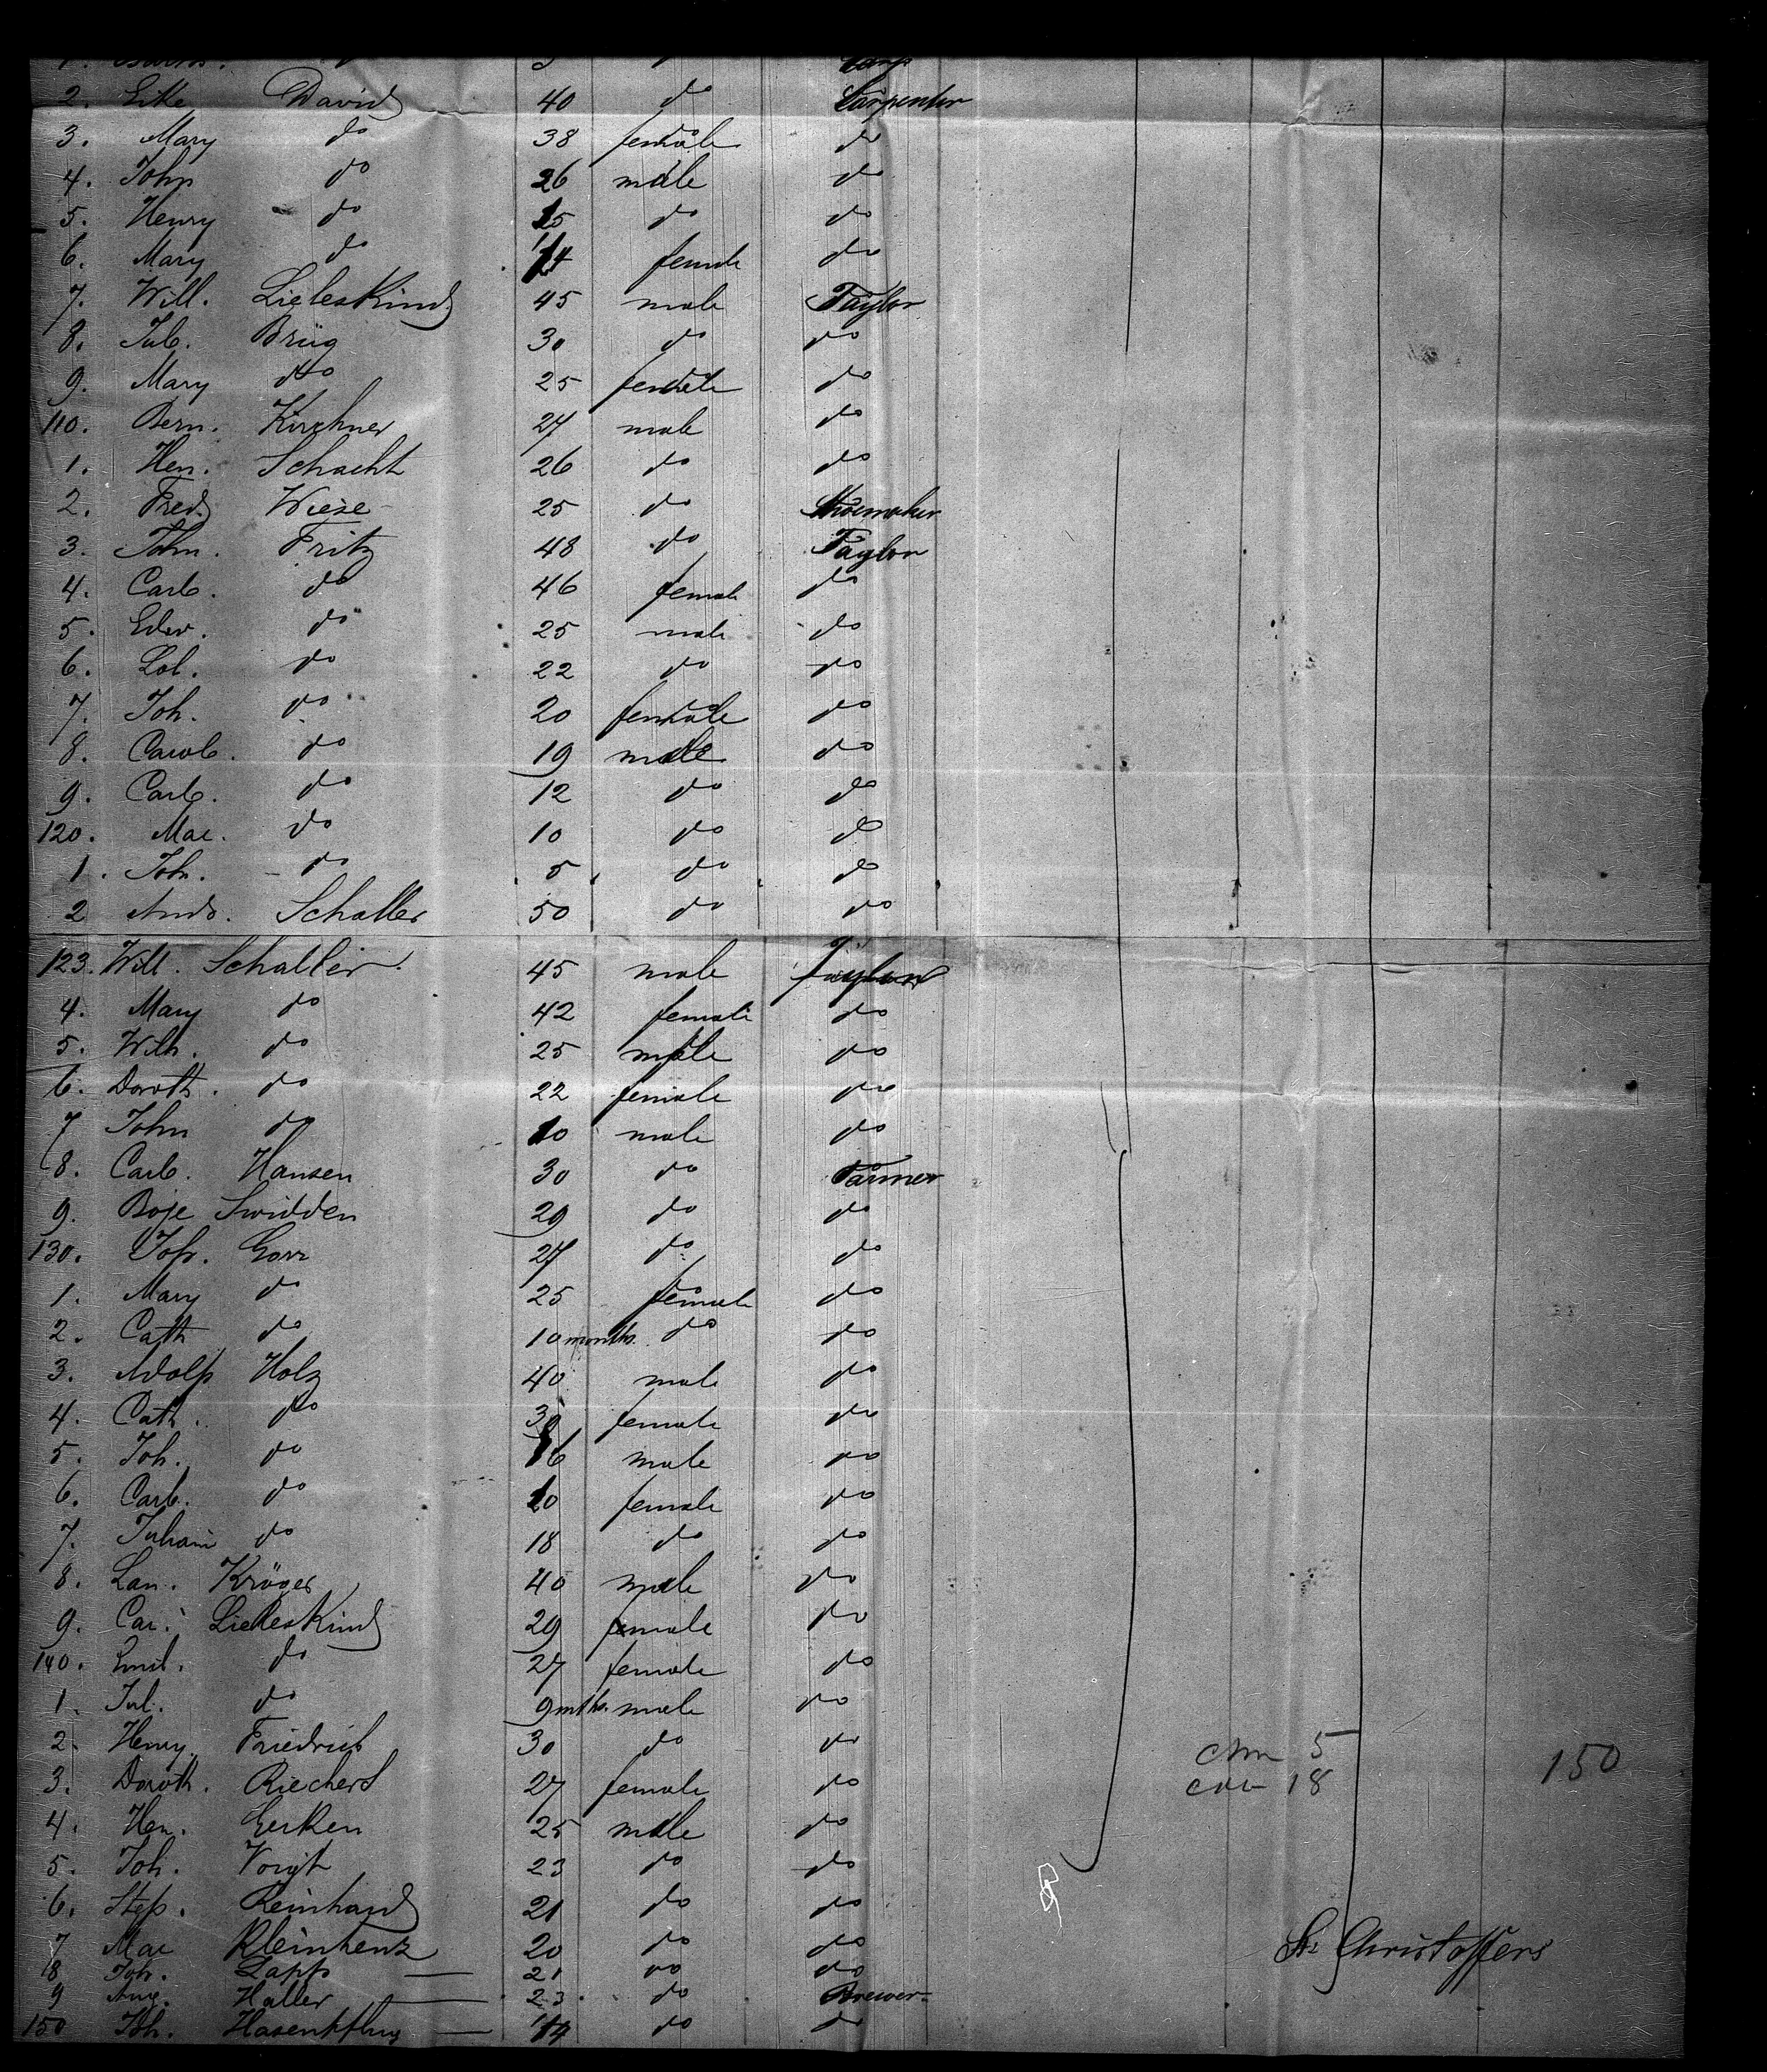 2. Eike David 40 do Carpenter
3. Mary do 38 female do
4. John do 26 male do
5. Henry do 15 do do
6. Mary do 14 female do
7. Will. Liebeskind 45 male Taylor
8. Jul. Brüg 30 do do
9. Mary do 25 female do
110. Bern. Kirchner 27 male do
1. Hen. Schacht 26 do do
2. Fred. Wiese 25 do Shoemaker
3. John. Fritz 48 do Taylor
4. Carl. do 46 female do
5. Edw. do 25 male do
6. Lol. do 22 do do
7. Joh. do 20 female do
8. Carol. do 19 male do
9. Carl. do 12 do do
120. Mar. do 10 do do
1. Joh. do 5 do do
2 Andr. Schaller 50 do do
123. Will. Schaller. 45 male Taylor
4. Mary do 42 female do
5. Wilh. do 25 male do
6. Doroth. do 22 female do
7 John do 10 male do
8. Carl. Hansen 30 do Farmer
9. Boje Swidden 29 do do
130. Joh. Gorr 27 do do
1. Mary do 25 female do
2. Cath do 10 months. do do
3. Adolph Holz 40 male do
4. Cath. do female do
5. Joh. do 16 male do
6. Carl. do 20 female do
7. do 18 do do
8. Lau. Kröger 40 male do
9. Car. Liebeskind 29 female do
140. Emil. do 27 female do
1. Jul. do 9 mths. male do
2 Henry. Friedrich 30 do do
5
150
3. Doroth. Riechert 27 female do
18
4. Hen. Gerken 25 male do
5. Joh. Voigt 23 do do
6. Steph. Reinhard 21 do do
7 Mar Kleinhenz 20 do do
Christoffers
8 Joh. Lapp 21 do do
9 Aug. Haller 23 do Brewer
150 Joh. 14 do do